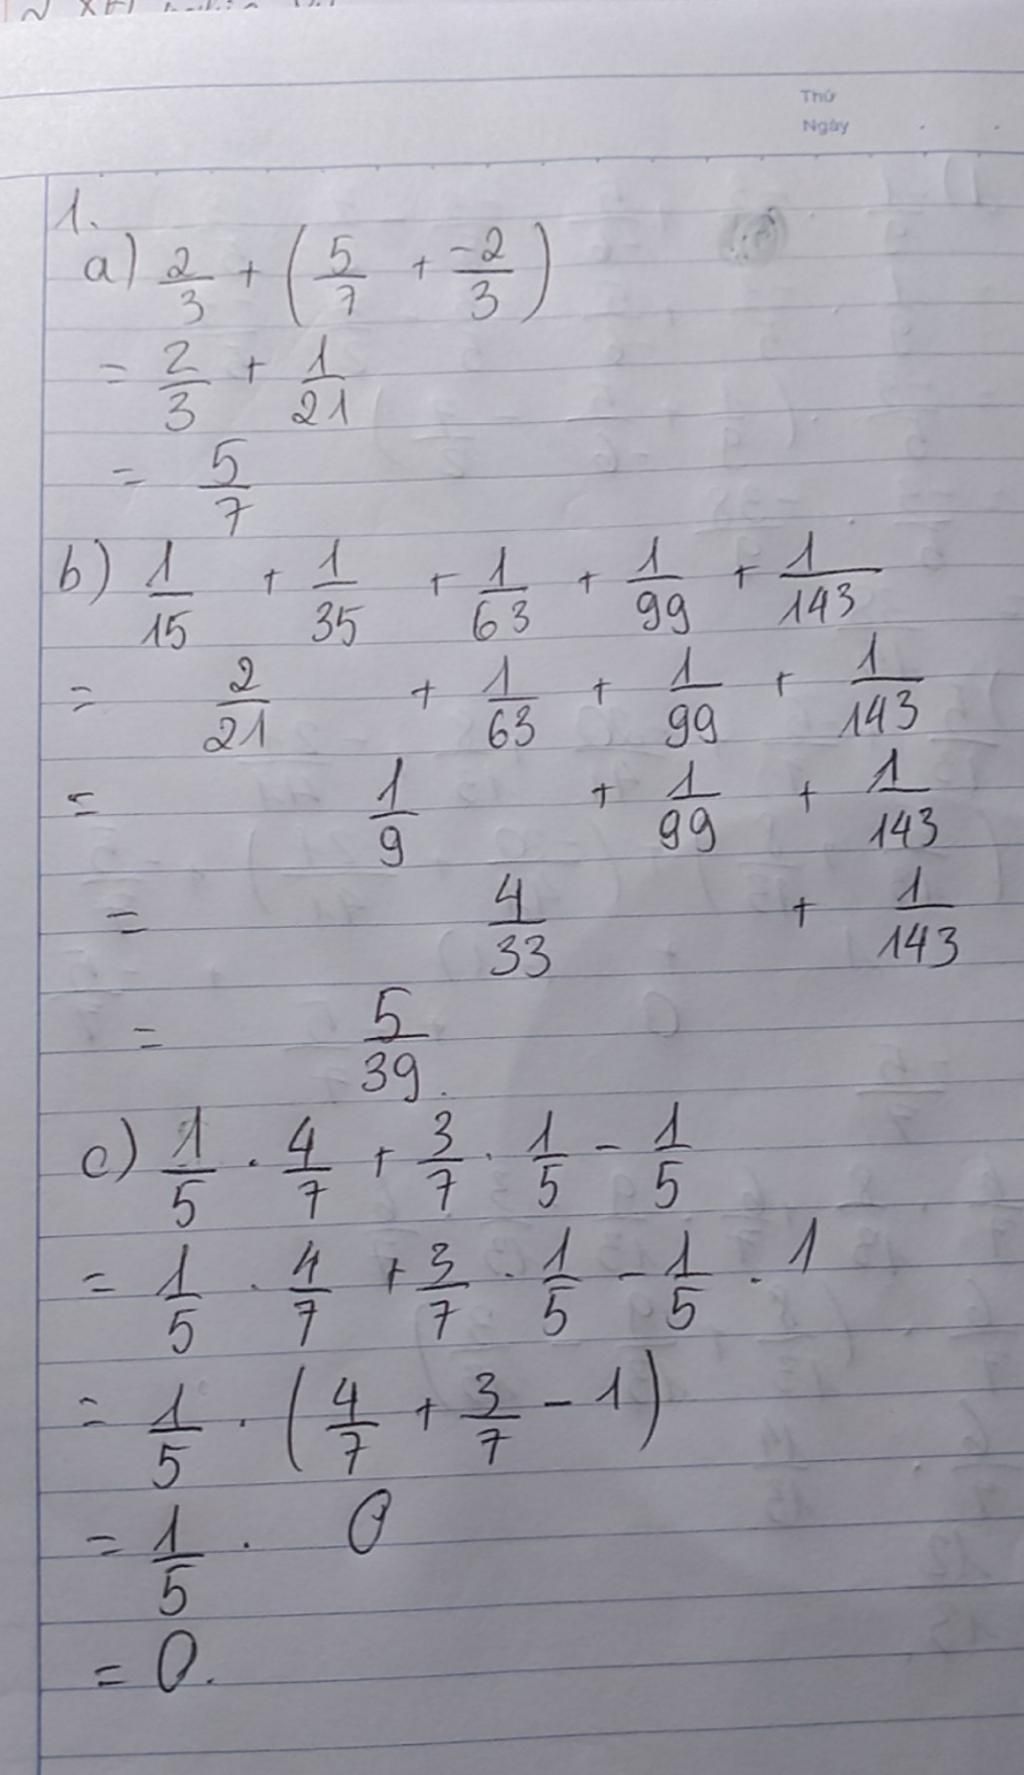 Thứ
Ngày
1.
a) 2/3 + (5/7 + -2/3)
= 2/3 + 1/21
= 5/7
b) 1/15 + 1/35 + 1/63 + 1/99 + 1/143
= 2/21 + 1/63 + 1/99 + 1/143
= 1/9 + 1/99 + 1/143
= 4/33 + 1/143
= 5/39.
c) 1/5 . 4/7 + 3/7 . 1/5 - 1/5
= 1/5 . 4/7 + 3/7 . 1/5 - 1/5 . 1
= 1/5 . (4/7 + 3/7 - 1)
= 1/5 . 0
= 0.